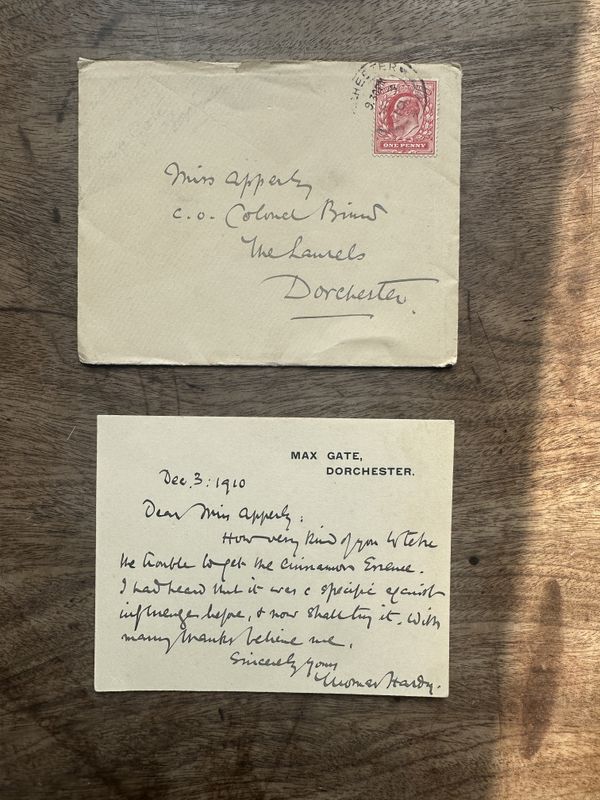 CHESTER
9.30AM
ONE PENNY
Miss Apperly
c.o. Colonel
The Laurels
Dorchester.
MAX GATE,
DORCHESTER.
Dec. 3: 1910
Dear Miss Apperly:
How very kind of you to take
the trouble to get the Cinnamon Essence.
I had heard that it was a specific against
influenza before, & now shall try it. With
many thanks believe me,
Sincerely yours
Thomas Hardy.